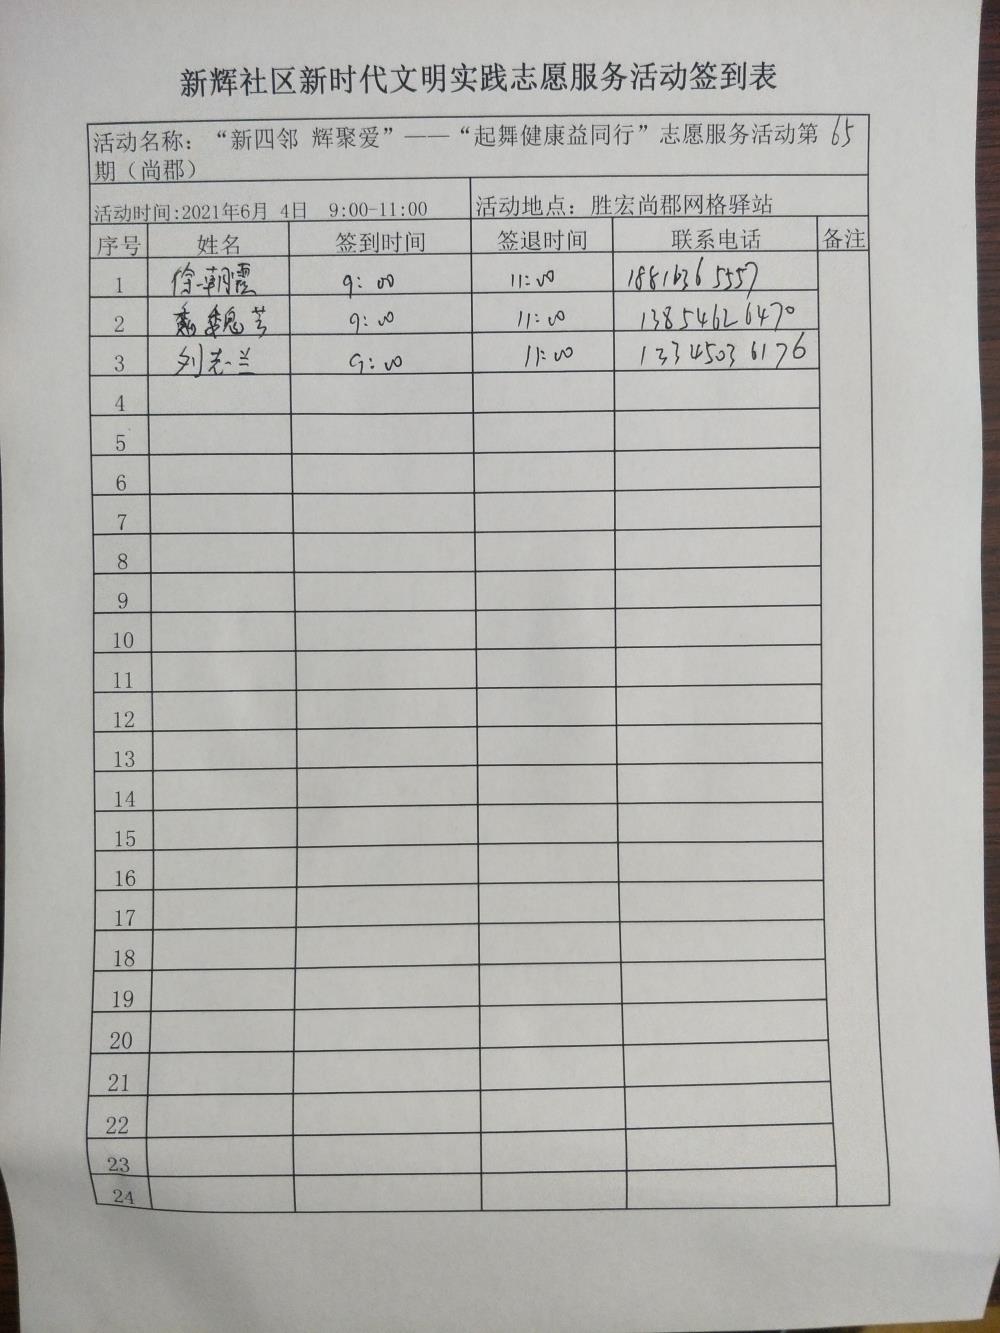 新辉社区新时代文明实践志愿服务活动签到表
活动名称：“新四邻 辉聚爱”——“起舞健康益同行”志愿服务活动第65
期（尚郡）
活动时间:2021年6月 4日 9:00-11:00 活动地点：胜宏尚郡网格驿站
序号 姓名 签到时间 签退时间 联系电话 备注
1 徐朝霞 9:00 11:00 18816365557
2 魏芳 9:00 11:00 13854626470
3 刘志兰 9:00 11:00 13345036176
4
5
6
7
8
9
10
11
12
13
14
15
16
17
18
19
20
21
22
23
24